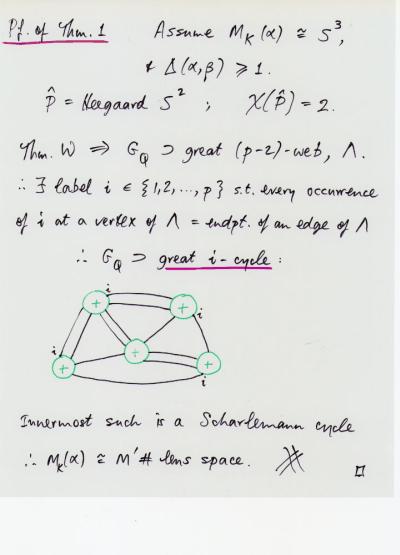 Pf. of Thm. 1 Assume M_K(α) ≅ S³,
& Δ(α,β) ⩾ 1.
P̂ = Heegaard S² ; χ(P̂) = 2.
Thm. W ⟹ G_Q ⊃ great (p-2)-web, Λ.
∴ ∃ label i ∈ {1,2,...,p} s.t. every occurrence
of i at a vertex of Λ = endpt. of an edge of Λ
∴ G_Q ⊃ great i-cycle :
i
+
+
i
i
+
+
+
i
Innermost such is a Scharlemann cycle
∴ M_K(α) ≅ M' # lens space. ※ □